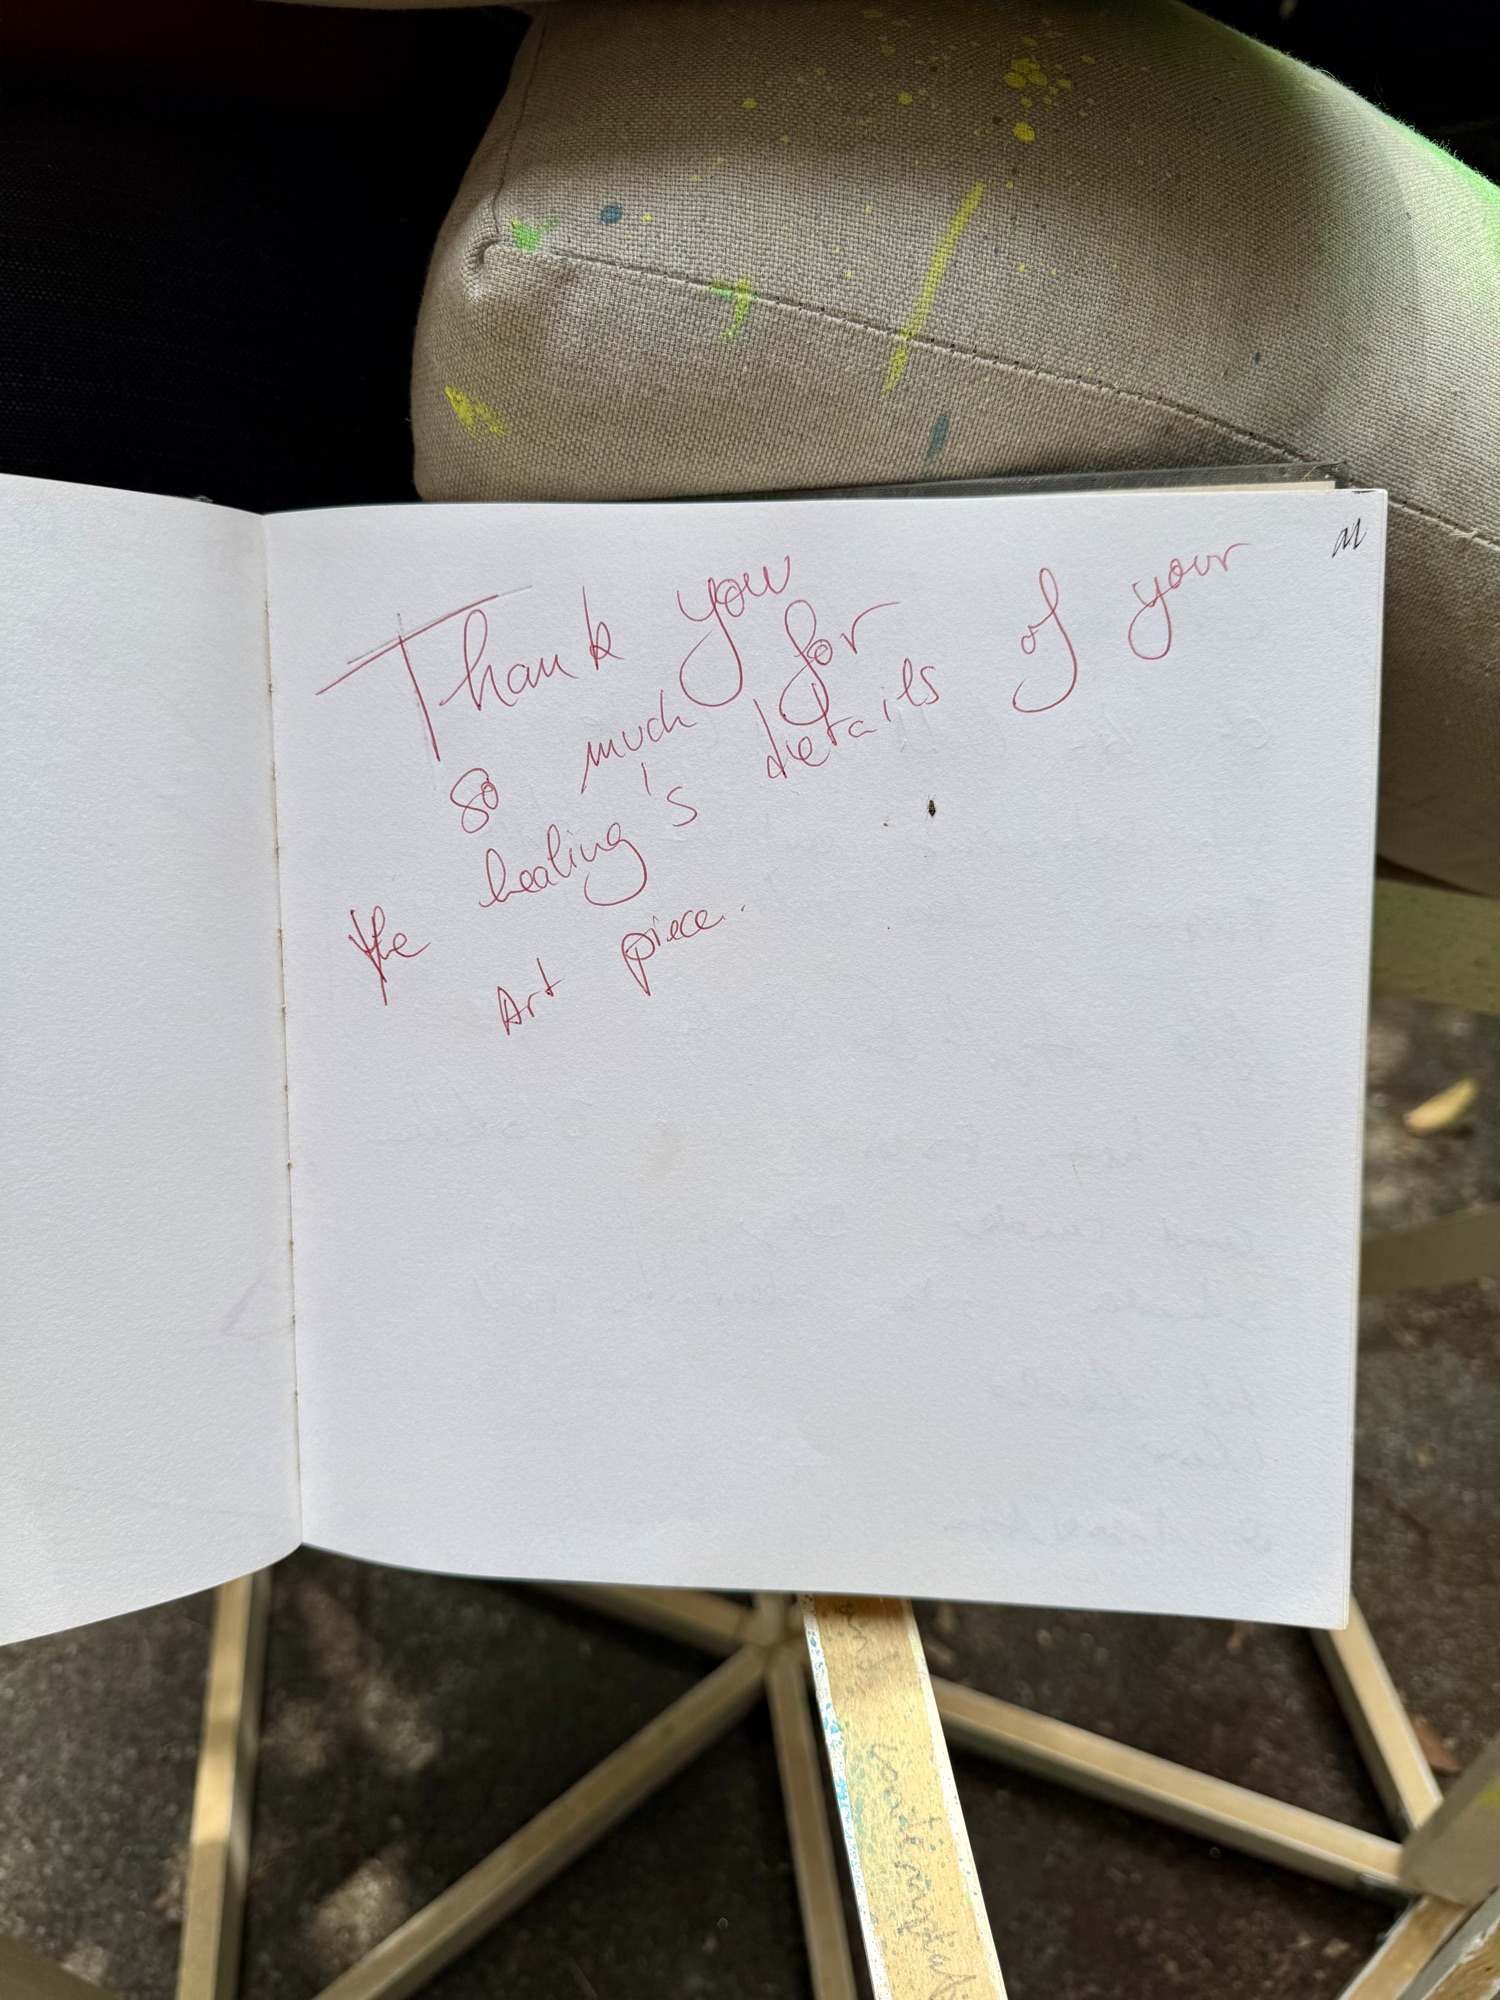 Thank you
so much for
the healing's details of your
Art piece.